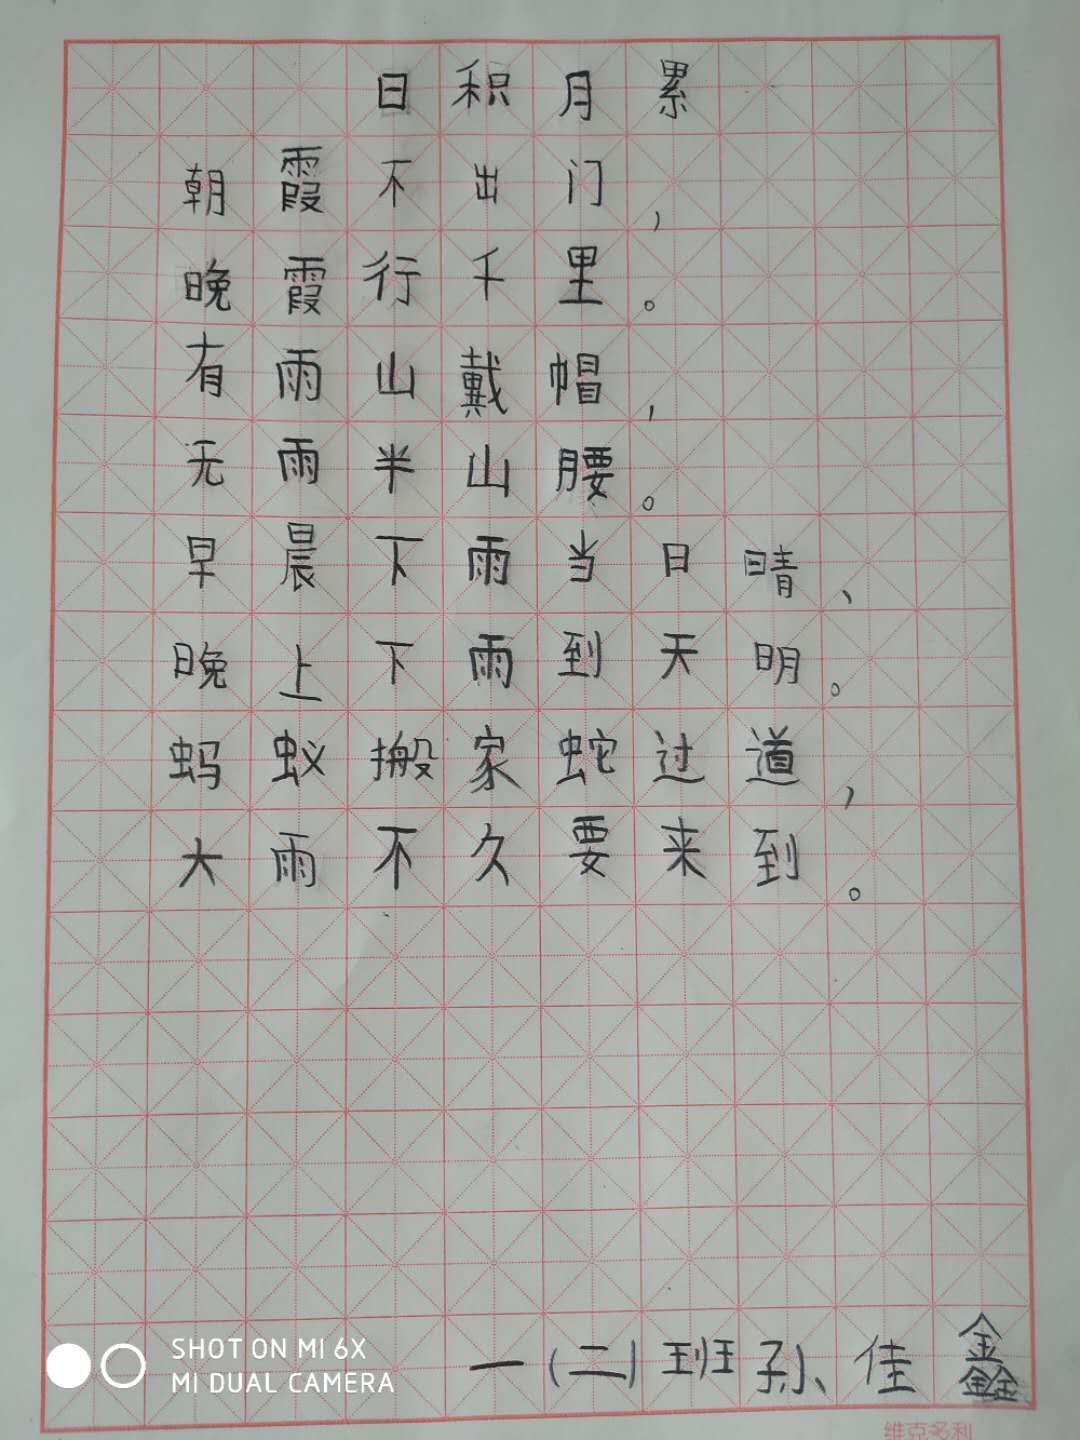 日积月累
朝霞不出门，
晚霞行千里。
有雨山戴帽，
无雨半山腰。
早晨下雨当日晴、
晚上下雨到天明。
蚂蚁搬家蛇过道，
大雨不久要来到。
一(二)班孙佳鑫
SHOT ON MI 6X
MI DUAL CAMERA
维克多利